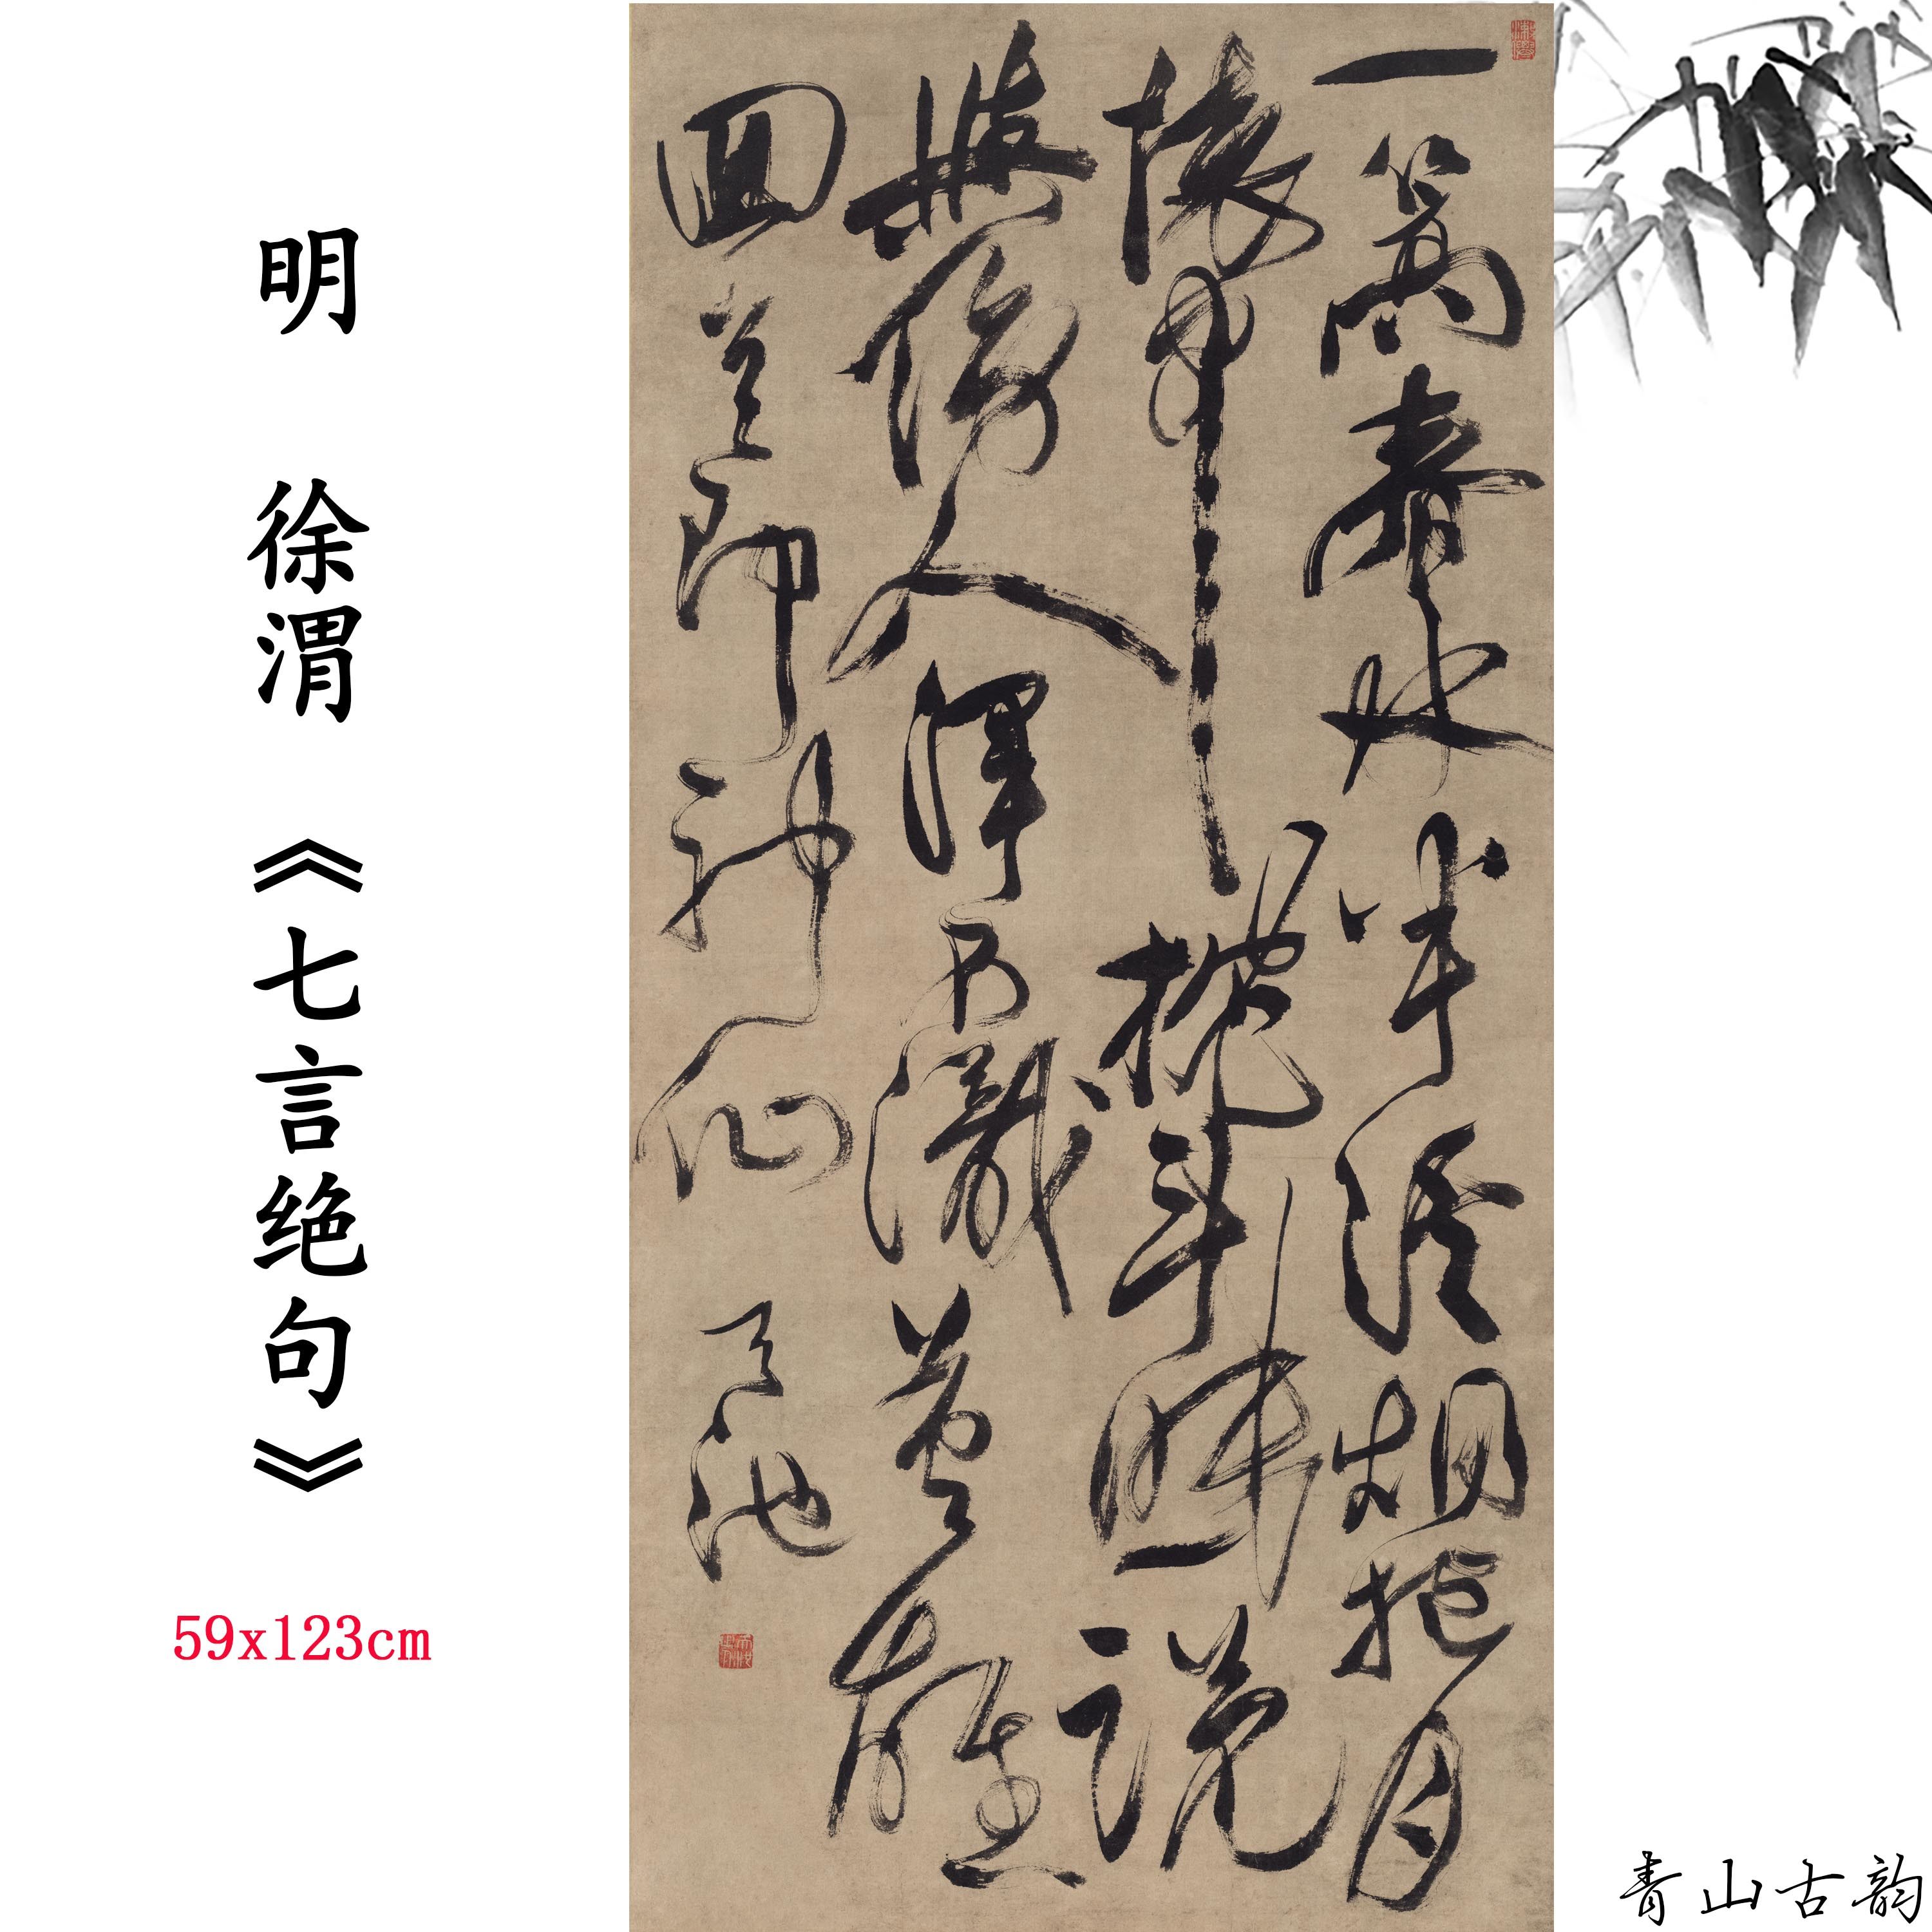 明 徐渭 《七言绝句》
59x123cm
一篙春水半溪烟抱月
懷中枕斗眠說
與傍人渾不識英雄
回首即神仙 天池
青山古韵